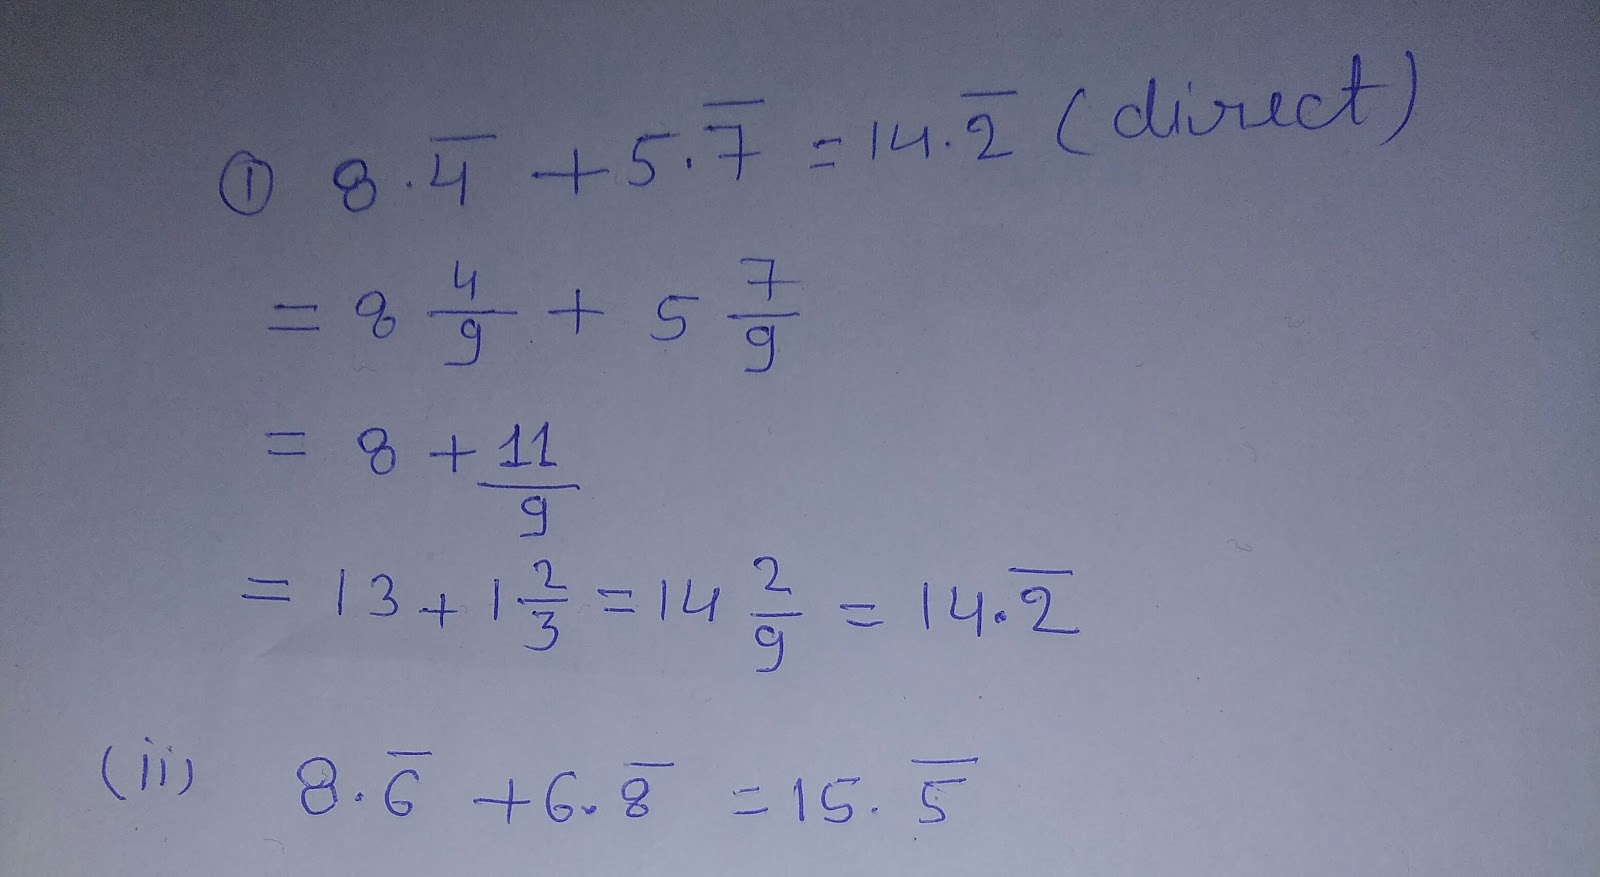 ① 8.4̅ + 5.7̅ = 14.2̅ (direct)
= 8 4/9 + 5 7/9
= 8 + 11/9
= 13 + 1 2/3 = 14 2/9 = 14.2̅
(ii) 8.6̅ + 6.8̅ = 15.5̅